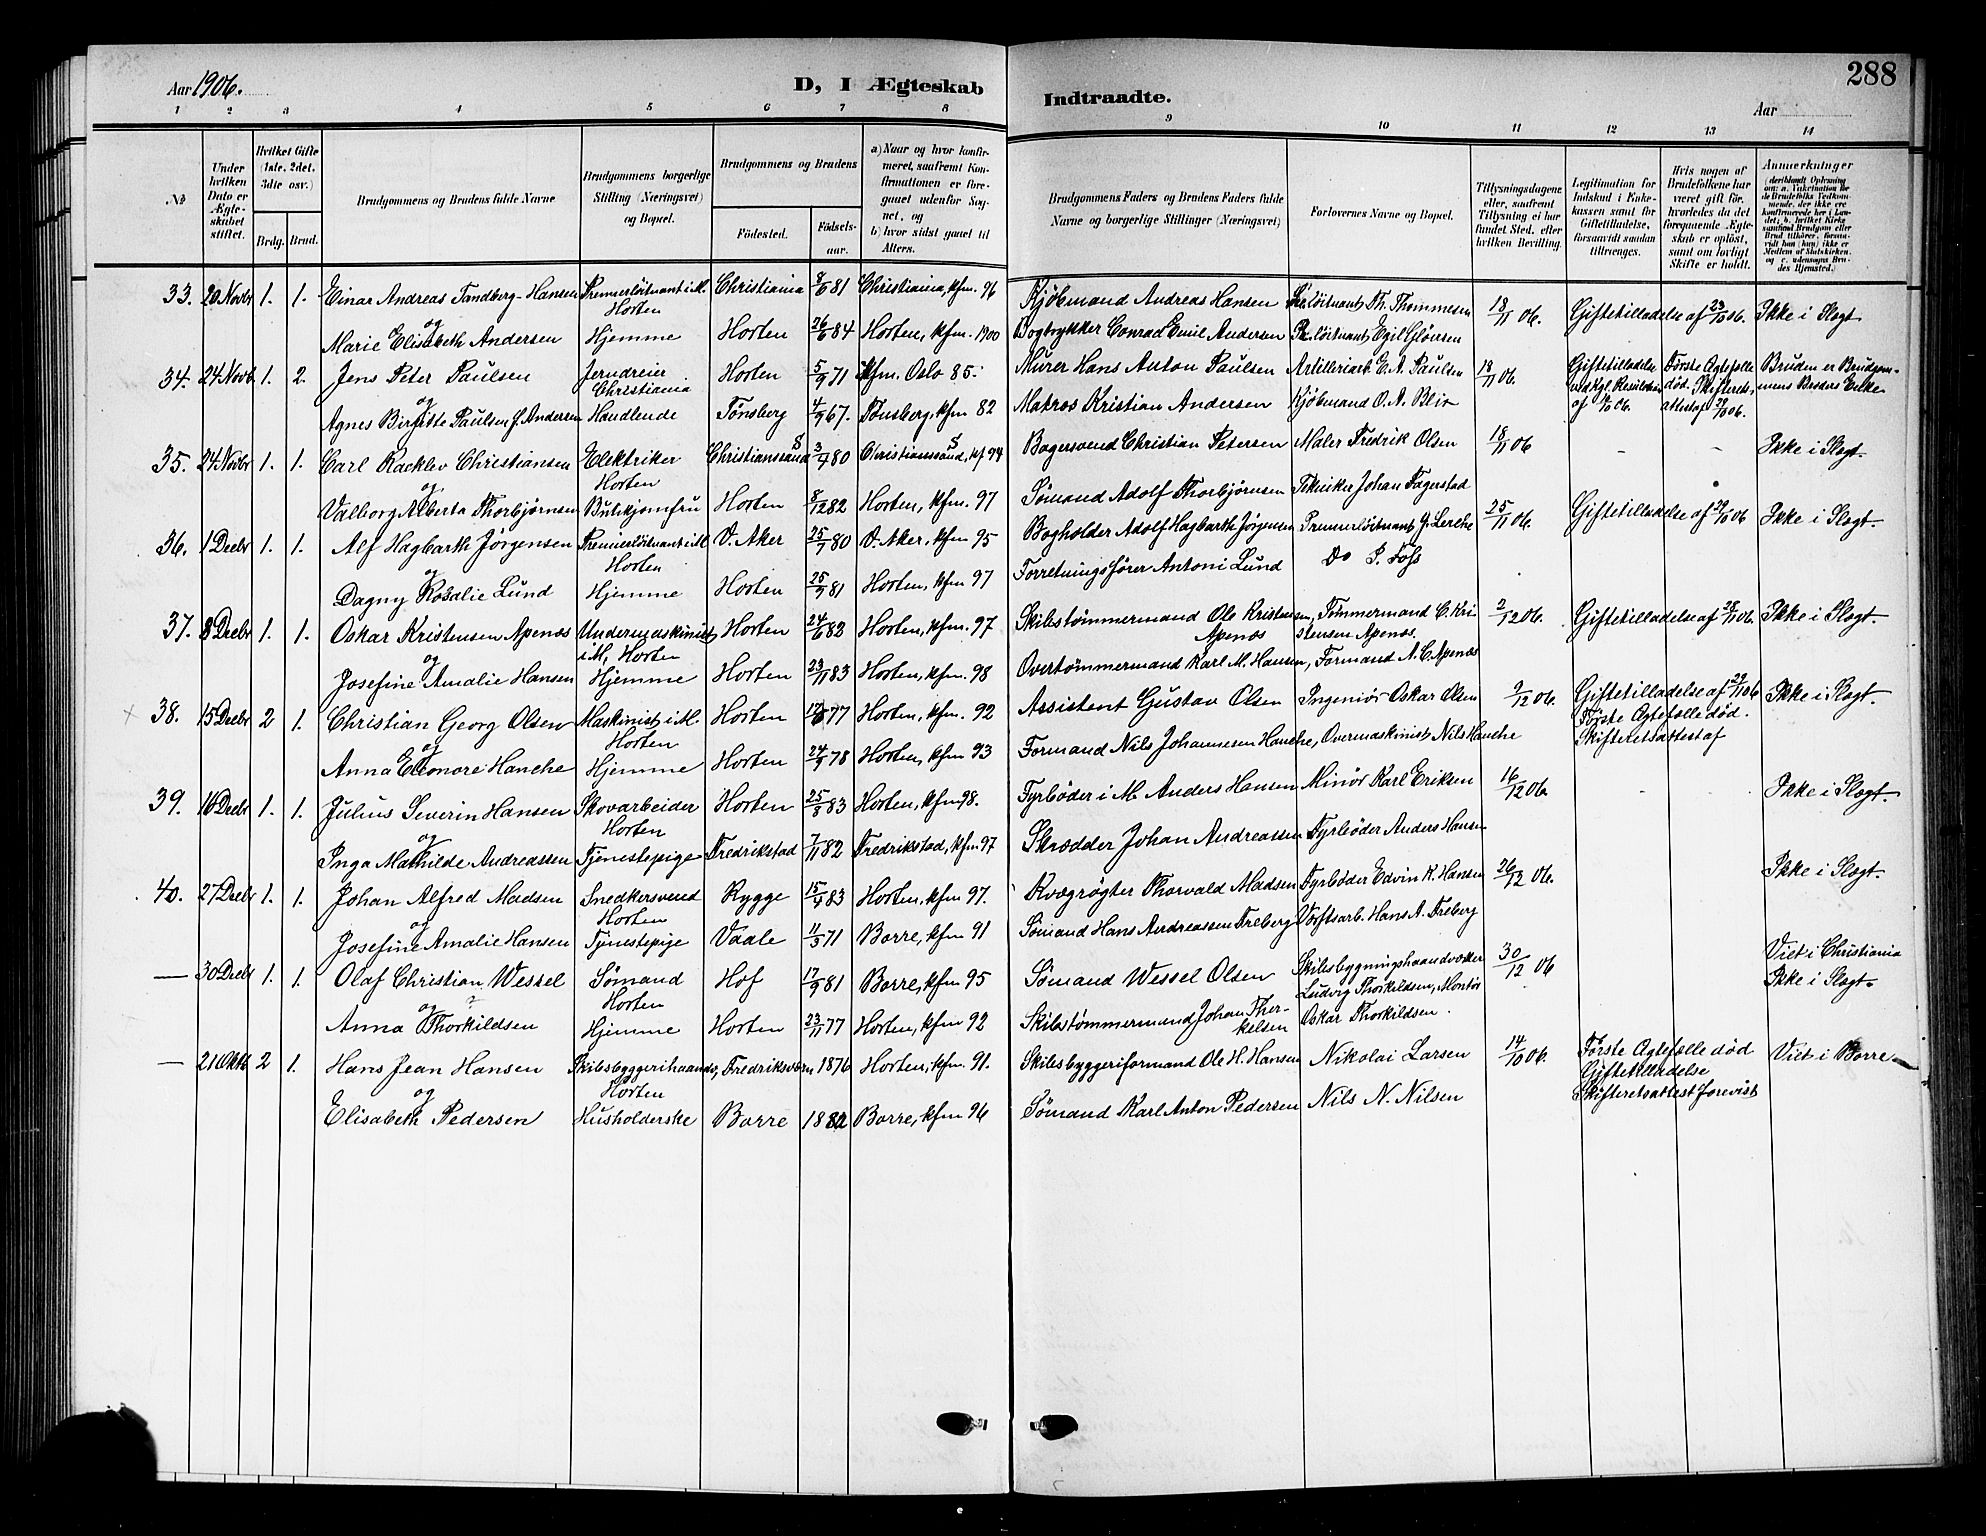 288
Aar 1906.
D, I Ægteskab Indtraadte.
Aar
1 2 3 4 5 6 7 8 9 10 11 12 13 14
№
Under hvilken Dato er Ægteskabet stiftet.
Hvilket Gifte (1ste, 2det, 3die osv.)
Brdg. Brud.
Brudgommens og Brudens fulde Navne
Brudgommens borgerlige Stilling (Næringsvei) og Bopæl.
Brudgommens og Brudens
Fødested. Fødselsaar.
a) Naar og hvor konfirmeret, saafremt Konfirmationen er foregaaet udenfor Sognet, og
b) hvor sidst gaaet til Alters.
Brudgommens Faders og Brudens Faders fulde Navne og borgerlige Stillinger (Næringsvei)
Forlovernes Navne og Bopæl.
Tillysningsdagene eller, saafremt Tillysning ei har fundet Sted, efter hvilken Bevilling.
Legitimation for Indskud i Enkekassen samt for Giftetilladelse, forsaavidt saadan tiltrænges.
Hvis nogen af Brudefolkene har været gift før, hvorledes da det foregaaende Ægteskab er opløst, samt om lovligt Skifte er holdt.
Anmerkninger
33. 20 Novbr 1. 1. Einar Andreas Tandberg-Hansen Premierløitnant i M. Christiania 8/6 81 Christiania, kfm. 96 Kjøbmand Andreas Hansen Pr.løitnant Th. Thommesen 18/11 06. Giftetilladelse af 23/10 06. Ikke i Slægt
og Horten
Marie Elisabeth Andersen Hjemme Horten 26/6 84 Horten, kfm. 1900 Bogtrykker Conrad Emil Andersen Pr.løitnant Egil Gløersen
34. 24 Novb. 1. 2. Jens Peter Paulsen Jerndreier Horten 5/9 71 kfm. Oslo 85. Murer Hans Anton Paulsen Artilleriarb. E. A. Paulsen 18/11 06. Giftetilladelse Første Ægtefælle Bruden er Brudgom-
og Christiania ved kgl. Resolution død. Skifterets- mens Broders Enke
Agnes Birgitte Paulsen f. Andersen Handlende Tønsberg 4/9 67. Tønsberg, kfm 82 Matros Kristian Andersen Kjøbmand O. A. Blix
35. 24 Novbr 1. 1. Carl Racklev Christiansen Elektriker Christianssand S 3/7 80 Christianssand, S kf 94 Bagersvend Christian Petersen Maler Fredrik Olsen 18/11 06 - - Ikke i Slægt.
og Horten
Valborg Alberta Thorbjørnsen Butikjomfru Horten 8/12 82 Horten, kfm. 97 Sømand Adolf Thorbjørnsen Tekniker Johan Fagerstad
36. 1 Decbr 1. 1. Alf Hagbarth Jørgensen Premierløitnant i M V. Aker 25/7 80 V. Aker, kfm 95 Bogholder Adolf Hagbarth Jørgensen Premierløitnant J. Lerche 25/11 06. Giftetilladelse af 29/10 06 Ikke i Slægt.
og Horten
Dagny Rosalie Lund Hjemme Horten 25/9 81 Horten, kfm 97 Forretningsfører Antoni Lund Do P. Foss
37. 8 Decbr 1. 1. Oskar Kristensen Apenæs Undermaskinist Horten 24/6 82 Horten, kfm. 97 Skibstømmermand Ole Kristensen Tømmermand C. Kri- 2/12 06. Giftetilladelse af 28/11 06. Ikke i Slægt.
og i M, Horten Apenæs stensen Apenæs.
Josefine Amalie Hansen Hjemme Horten 23/11 83 Horten, kfm. 98 Overtømmermand Karl M. Hansen, Formand A. C. Apenæs
38. 15 Decbr 2 1. Christian Georg Olsen Maskinist i M. Horten 77 Horten, kfm. 92 Assistent Gustav Olsen Ingeniør Oskar Olsen 9/12 06. Giftetilladelse af 29/11 06 Ikke i Slægt.
og Horten Første Ægtefælle død.
Anna Eleonore Hanche Hjemme Horten 24/9 78 Horten, kfm 93 Formand Nils Johannesen Hanche, Overmaskinist Nils Hanche Skifteretsattest af
39. 16 Decbr 1. 1. Julius Severin Hansen Skovarbeider Horten 25/3 83 Horten, kfm 98. Fyrbøder i M Anders Hansen Minør Karl Eriksen 16/12 06. - - Ikke i Slægt.
og Horten
Inga Mathilde Andreassen Tjenestepige Fredrikstad 7/11 82 Fredrikstad, kfm 97 Skrædder Johan Andreassen Fyrbøder Anders Hansen
40. 27 Decbr 1. 1. Johan Alfred Madsen Snedkersvend Rygge 15/4 83 Horten, kfm 97. Kvægrøgter Thorvald Madsen Fyrbøder Edvin K. Hansen 26/12 06. Ikke i Slægt.
og Horten
Josefine Amalie Hansen Tjenestepige Vaale 11/3 71 Borre, kfm 91 Sømand Hans Andreassen Freberg Værftsarb. Hans A. Freberg
— 30 Decbr 1. 1. Olaf Christian Wessel Sømand Hof 17/9 81 Borre, kfm 95 Sømand Wessel Olsen Skibsbygningshaandværker 30/12 06 Viet i Christiania
og Horten Ludvig Thorkildsen, Montør Ikke i Slægt.
Anna Thorkildsen Hjemme Horten 23/11 77 Horten, kfm 92 Skibstømmermand Johan Ther- Oskar Thorkildsen.
kelsen
— 21 Oktb 2 1. Hans Jean Hansen Skibsbyggerihaandv, Fredriksværn 1876 Horten, kfm 91. Skibsbyggeriformand Ole H. Hansen Nikolai Larsen 14/10 06. Første Ægtefælle død Viet i Borre
og Horten Giftetilladelse
Elisabeth Pedersen Husholderske Borre 1882 Borre, kfm 96 Sømand Karl Anton Pedersen Nils N. Nilsen Skifteretsattest forevist